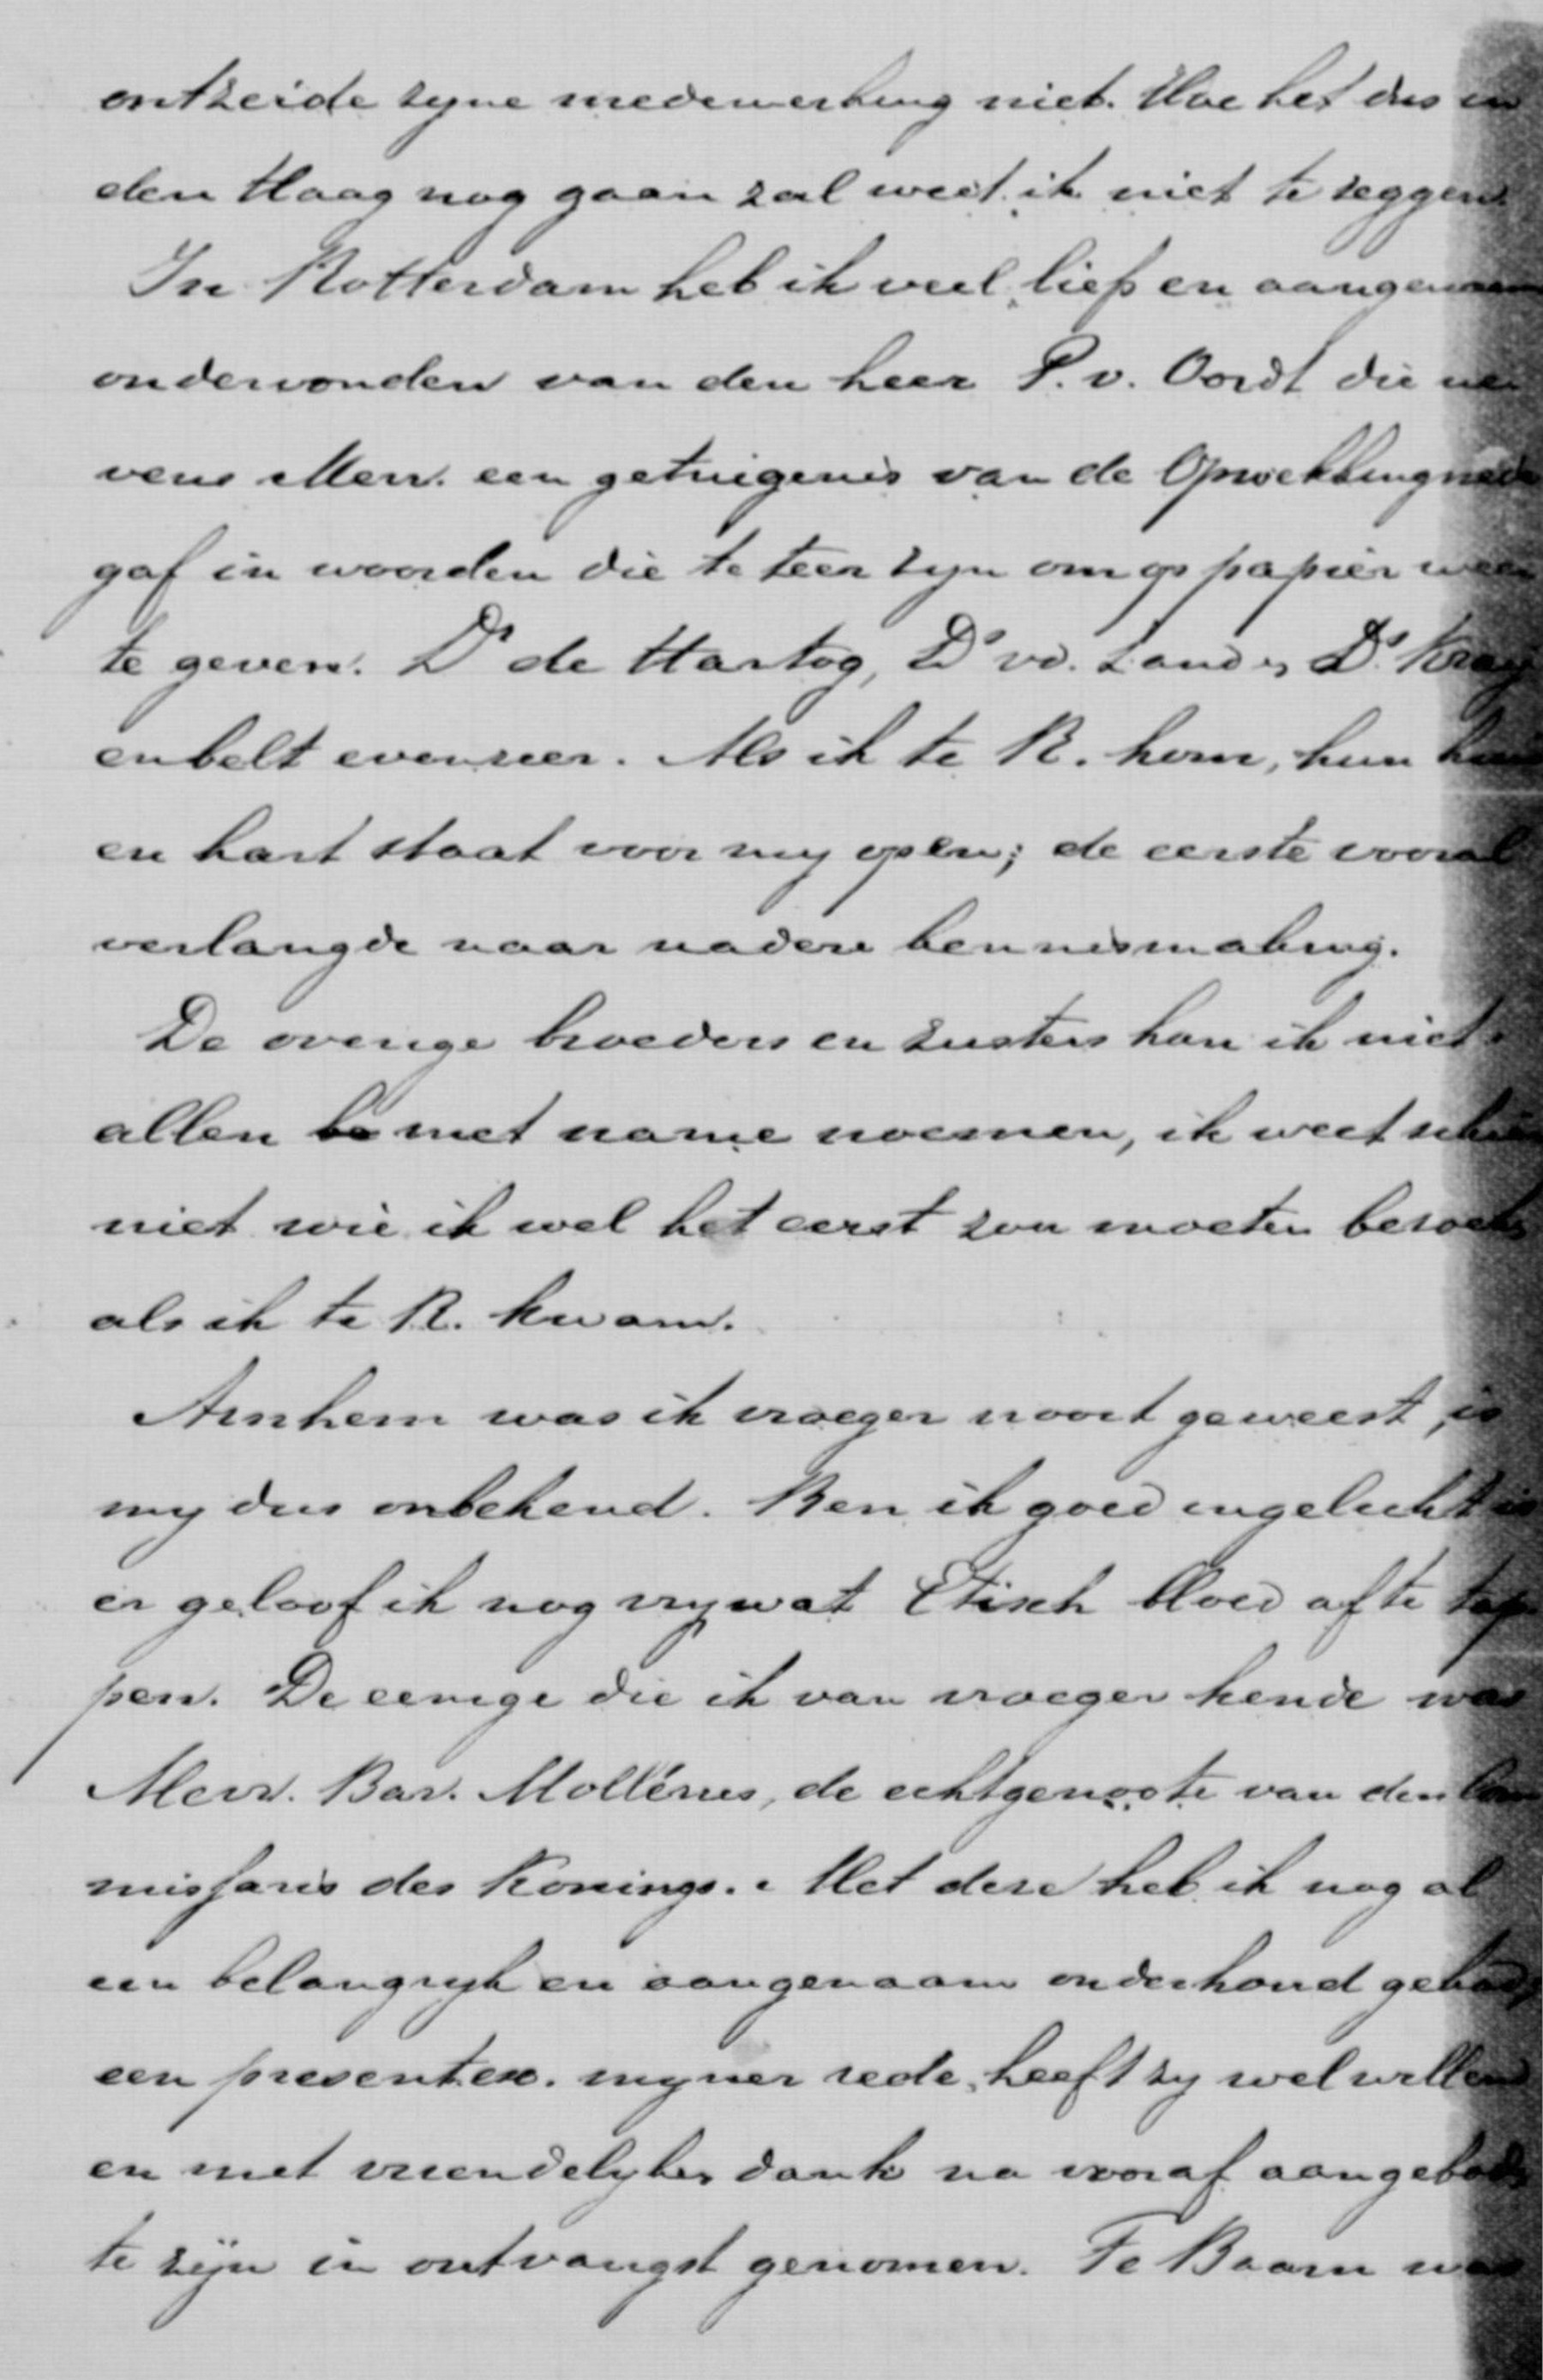 ontzeide zyne medewerking niet. Hoe het dus in
den Haag nog gaan zal weet ik niet te zeggen.
In Rotterdam heb ik veel lief en aangenaam
ondervonden van den heer P. v. Oordt die ne
vens Mevr. een getuigenis van de Opwekking
gaf in woorden die te teer zyn om op papier weer
te geven. Ds de Hartog, Ds vd. Zande, Ds Kray
enbelt evenzeer. Als ik te R. kom, hun huis
en hart staat voor my open; de eerste vooral
verlangde naar nadere kennismaking.
De overige broeders en zusters kan ik niet
allen met name noemen, ik weet
niet wie ik wel het eerst zou moeten bezoeken
als ik te R. kwam.
Arnhem was ik vroeger nooit geweest, is
my dus onbekend. Ben ik goed ingelicht is
er geloof ik nog vry wat Etisch bloed af te tap
pen. De eenige die ik van vroeger kende was
Mevr. Bar. Mollérus, de echtgenoote van den Com
missaris des Konings. Met deze heb ik nog al
een belangryk en aangenaam onderhoud gehad,
een present ex. myner rede, heeft zy welwillend
en met vriendelyken dank na vooraf aangeboden
te zijn in ontvangst genomen. Te Baarn was